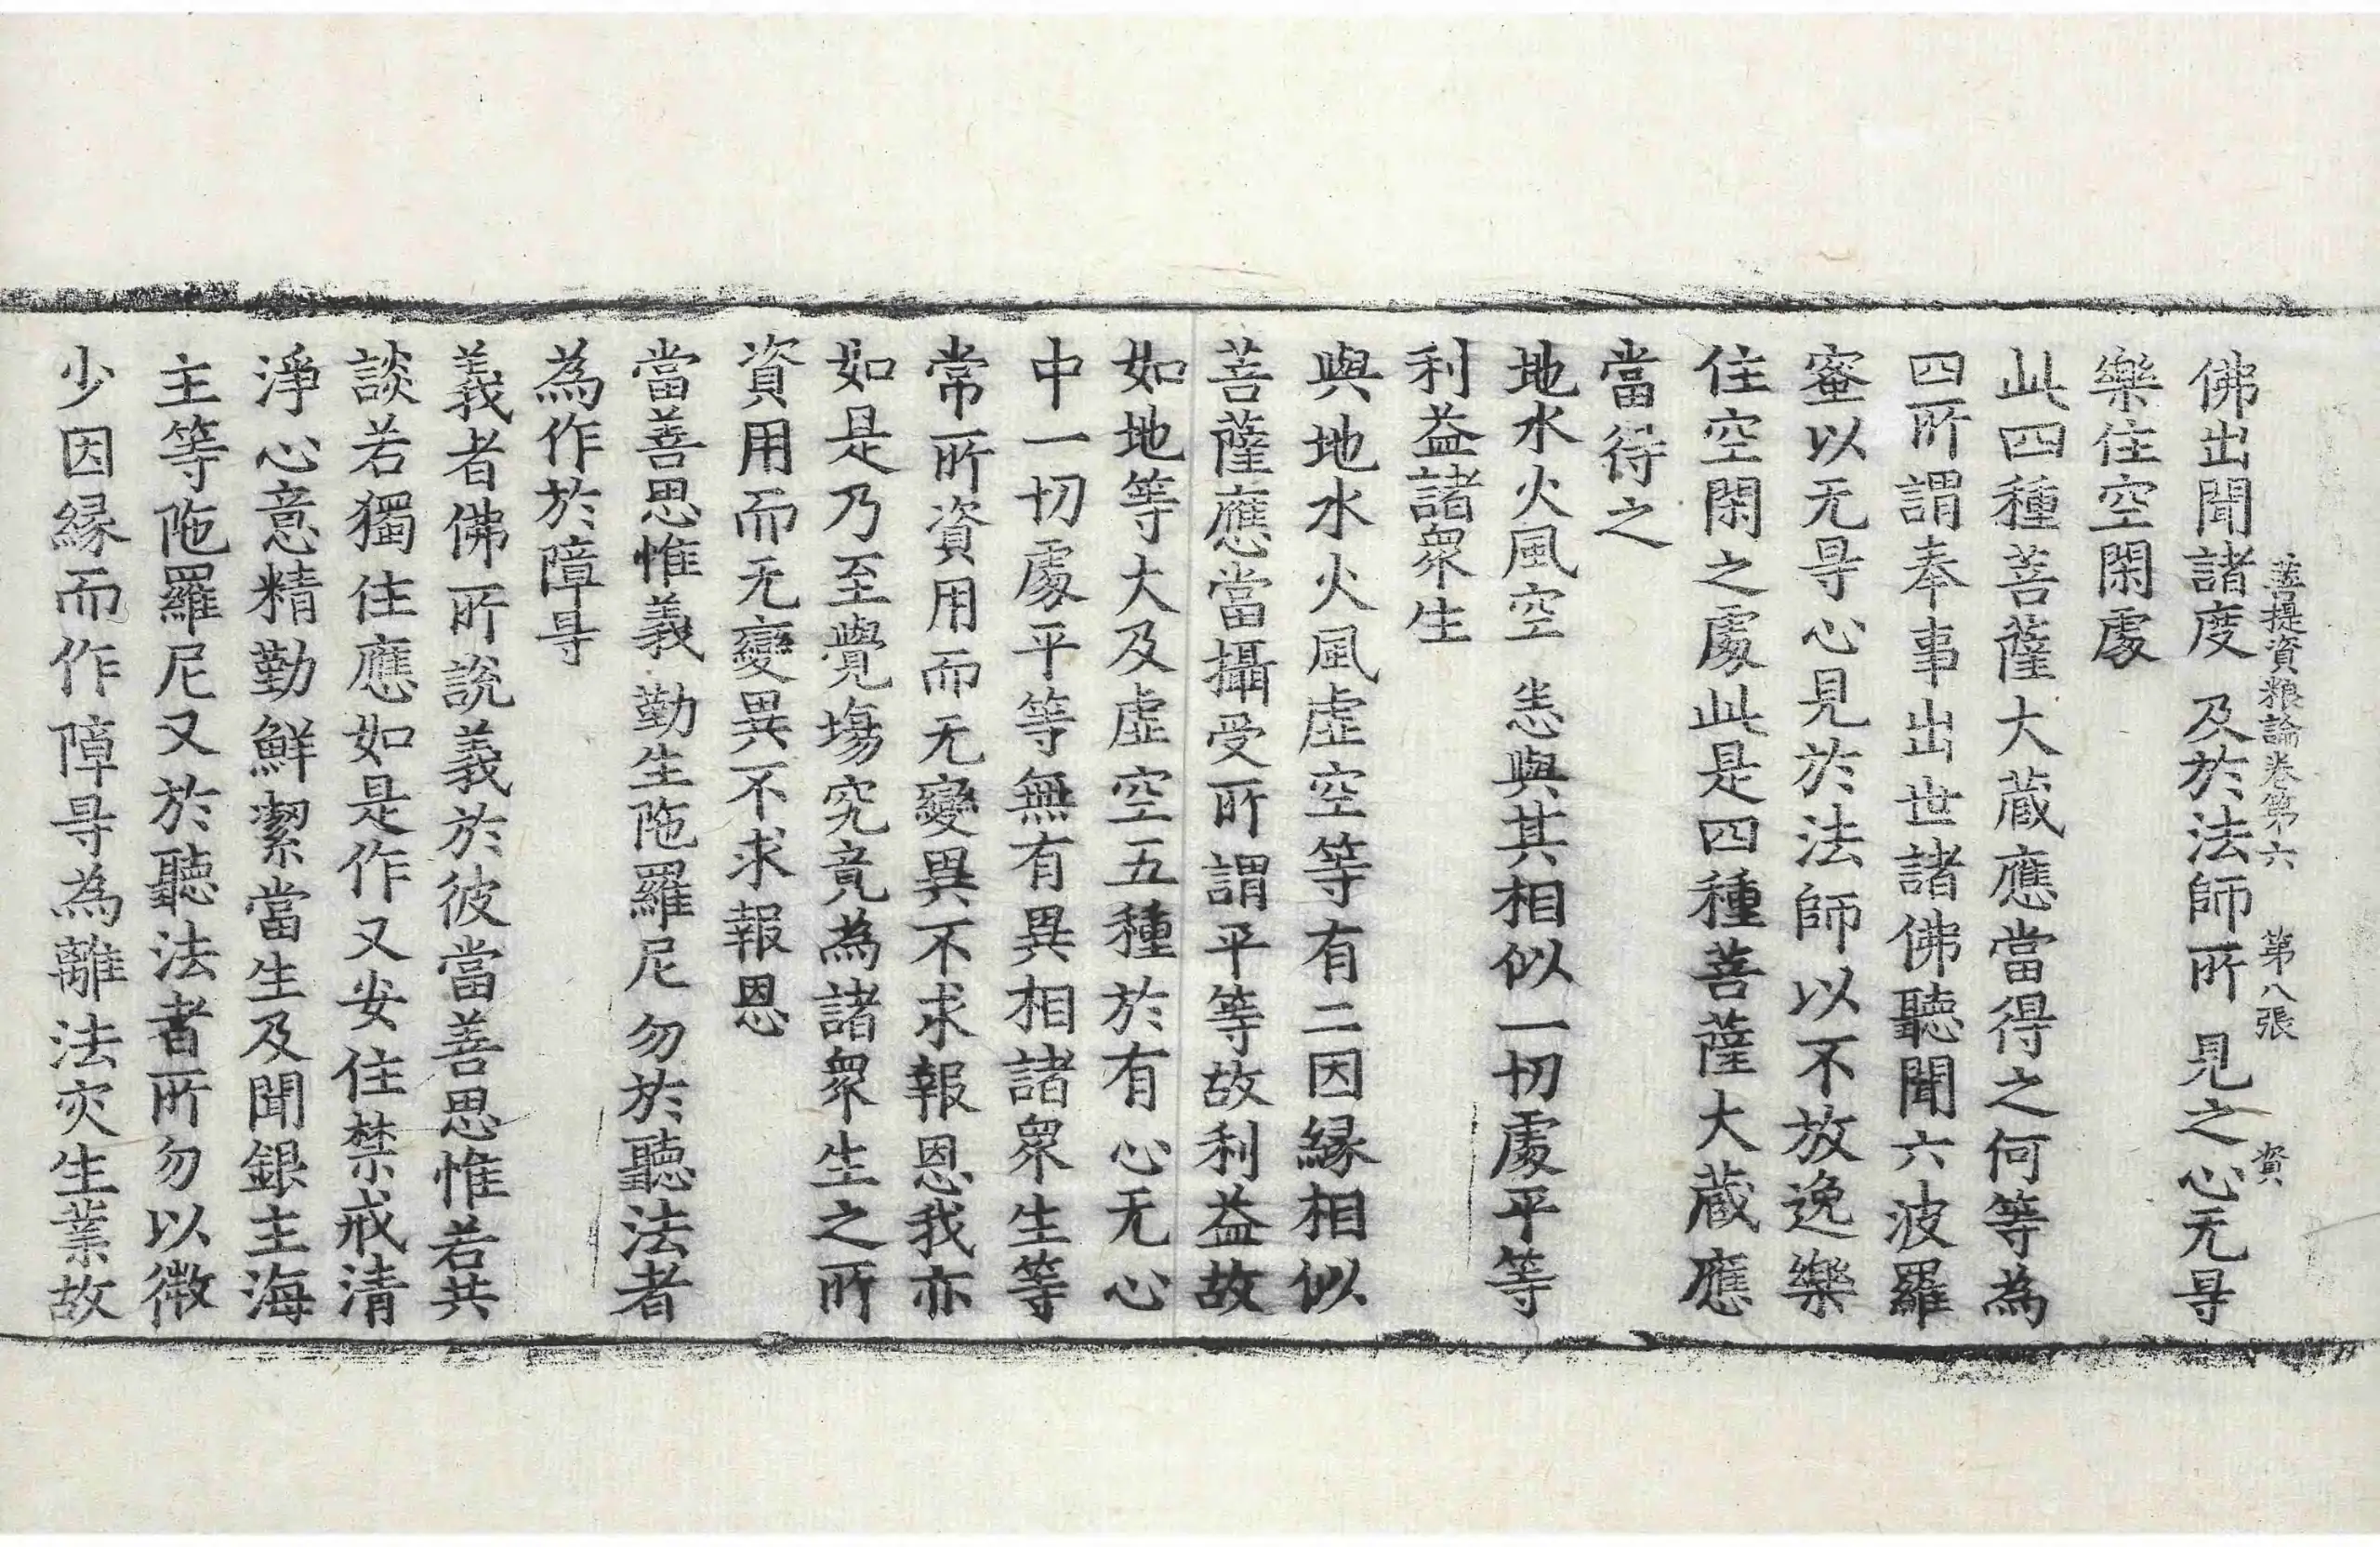 菩提資粮論卷第六 第八張 資
佛出聞諸度 及於法師所 見之心无㝵
樂住空閑處
此四種菩薩大蔵應當得之何等為
四所謂奉事出世諸佛聽聞六波羅
蜜以无㝵心見於法師以不放逸樂
住空閑之處此是四種菩薩大蔵應
當得之
地水火風空 悉與其相似 一切處平等
利益諸衆生
與地水火風虛空等有二因緣相似
菩薩應當攝受所謂平等故利益故
如地等大及虛空五種於有心无心
中一切處平等無有異相諸衆生等
常所資用而无變異不求報恩我亦
如是乃至覺場究竟為諸衆生之所
資用而无變異不求報恩
當善思惟義 勤生陁羅尼 勿於聽法者
為作於障㝵
義者佛所說義於彼當善思惟若共
談若獨住應如是作又安住禁戒清
淨心意精勤鮮潔當生及聞銀主海
主等陁羅尼又於聽法者所勿以微
少因緣而作障㝵為離法灾生業故